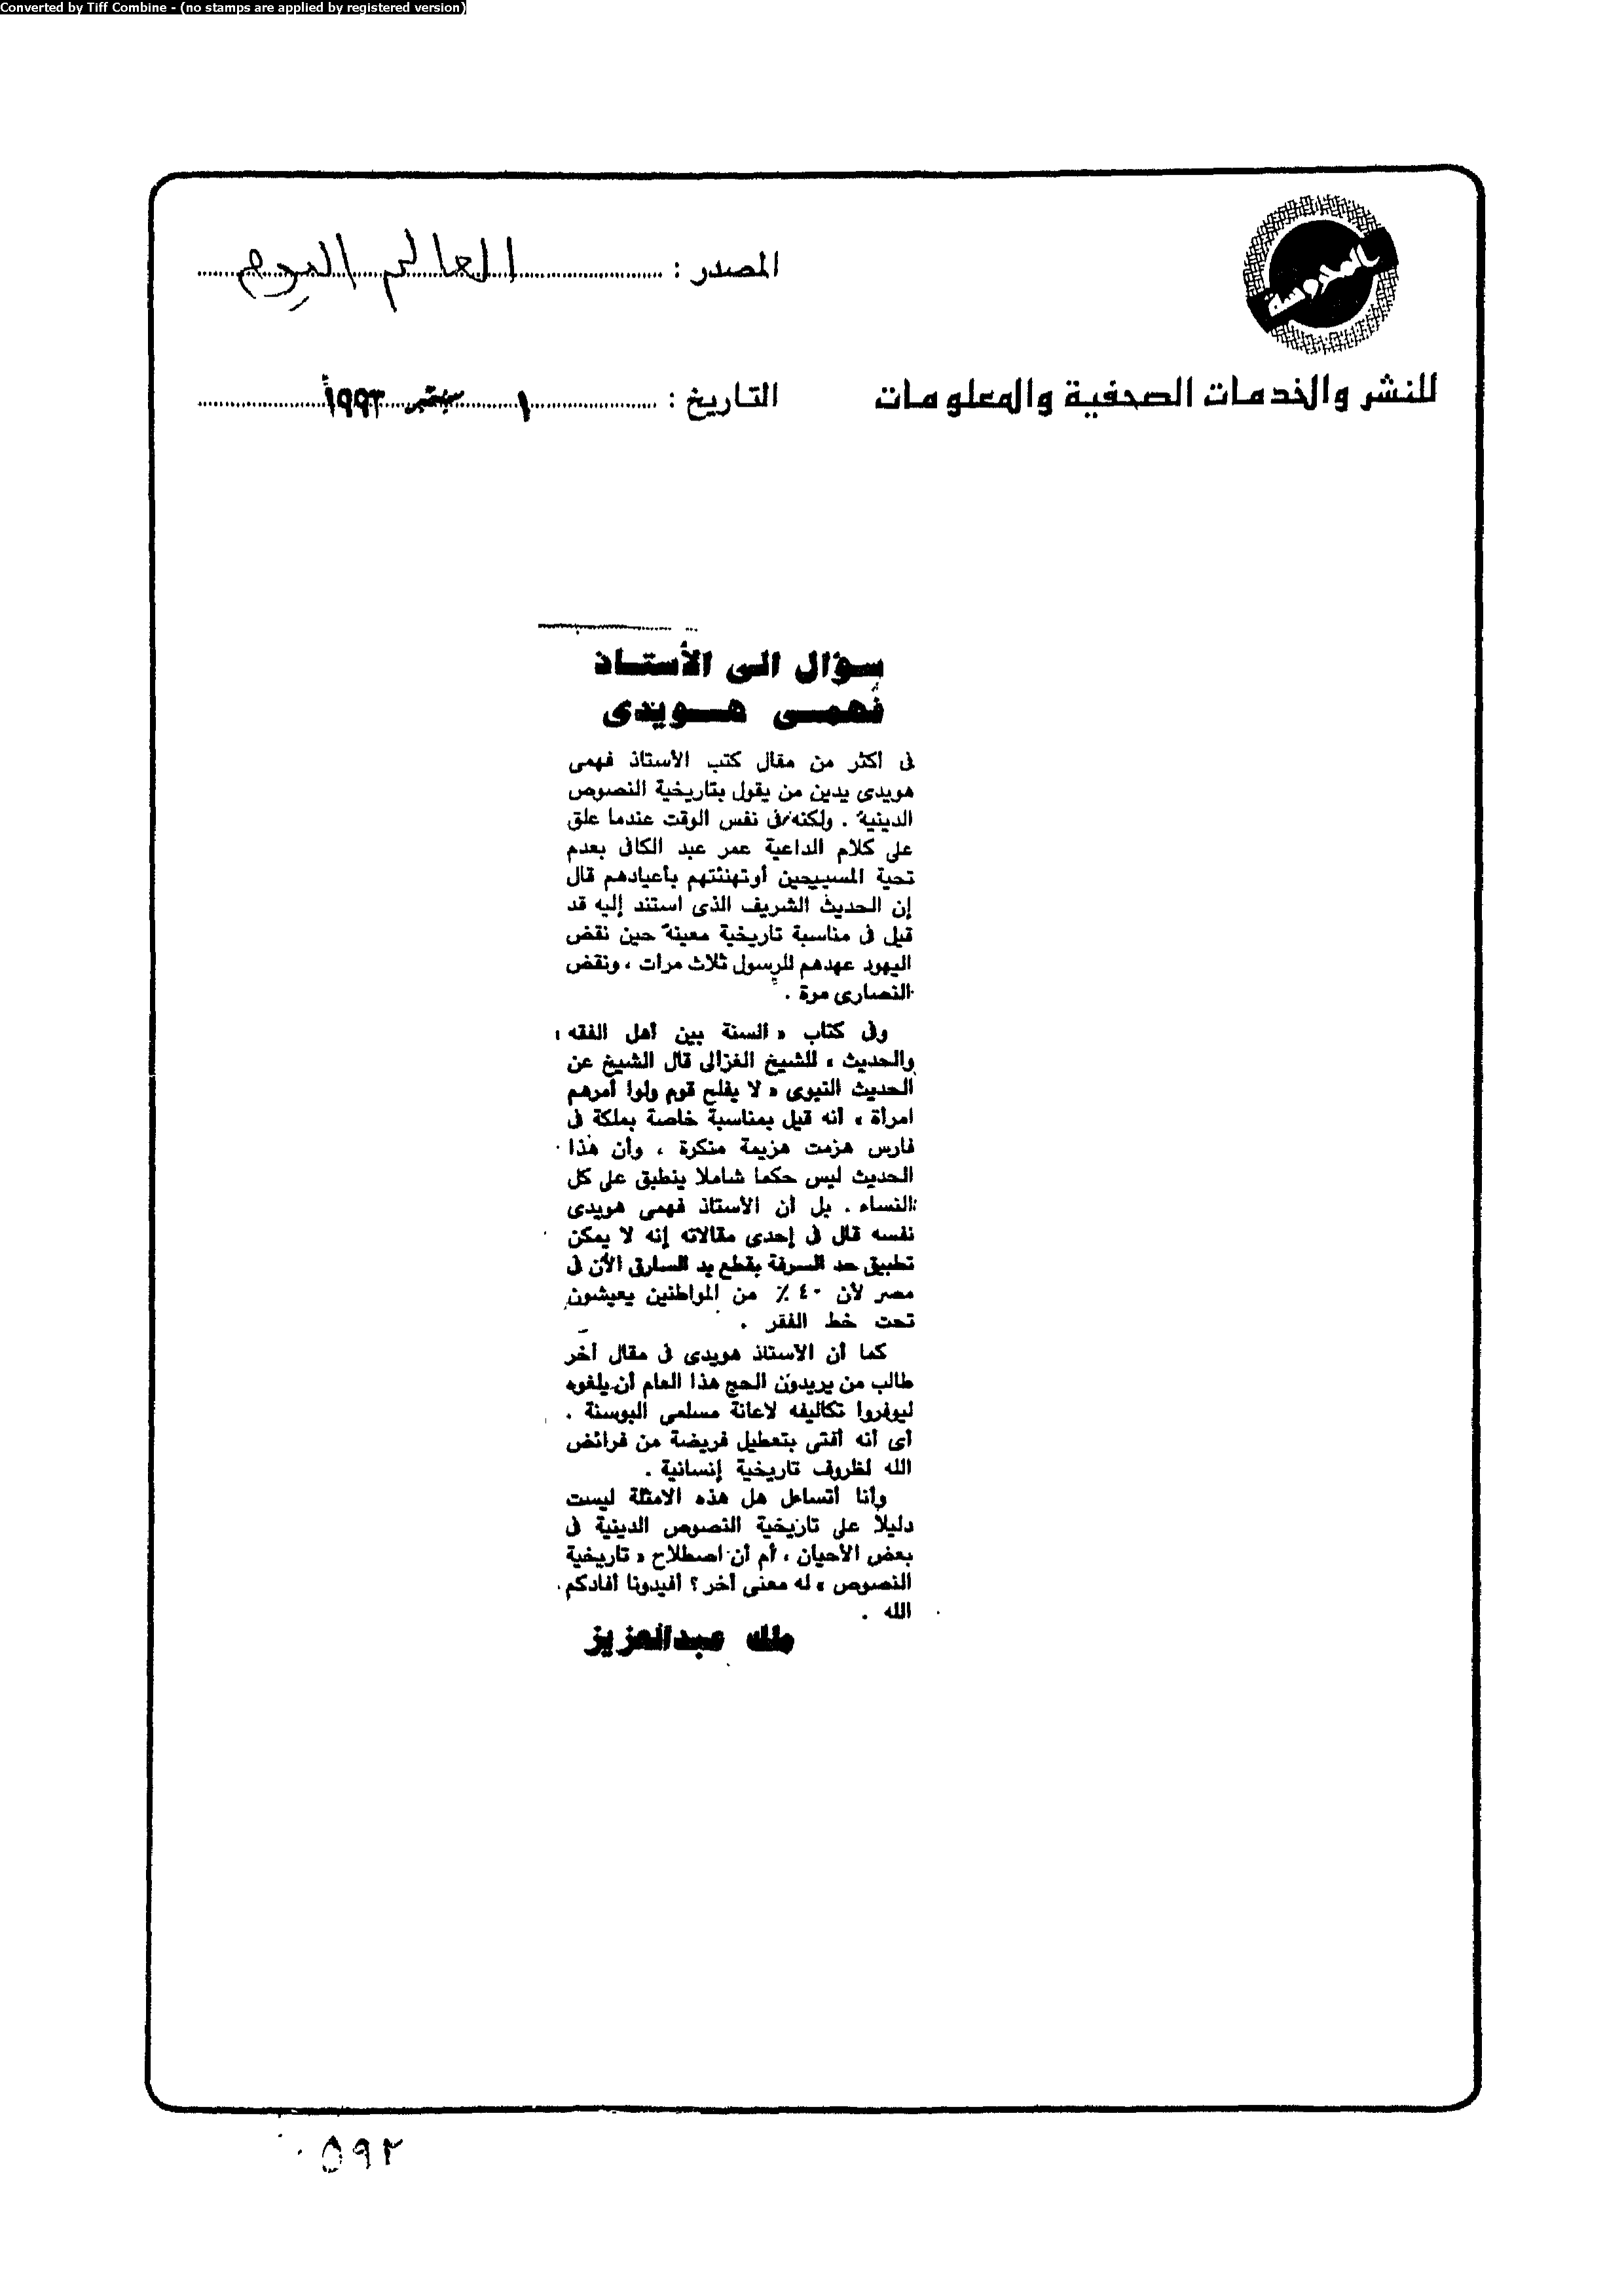 Converted by Tiff Combine - (no stamps are applied by registered version)
المحروسة
للنشر والخدمات الصحفية والمعلومات
المصدر : العالم اليوم
التاريخ : ١ سبتمبر ١٩٩٣
سؤال الى الأستاذ
فهمى هويدى
فى أكثر من مقال كتب الأستاذ فهمى
هويدى يدين من يقول بتاريخية النصوص
الدينية . ولكنه فى نفس الوقت عندما علق
على كلام الداعية عمر عبد الكافى بعدم
تحية المسيحيين أوتهنئتهم بأعيادهم قال
إن الحديث الشريف الذى استند إليه قد
قيل فى مناسبة تاريخية معينة حين نقض
اليهود عهدهم للرسول ثلاث مرات ، ونقض
النصارى مرة .
وفى كتاب « السنة بين أهل الفقه
والحديث » للشيخ الغزالى قال الشيخ عن
الحديث النبوى « لا يفلح قوم ولوا أمرهم
امرأة » أنه قيل بمناسبة خاصة بملكة فى
فارس هزمت هزيمة منكرة ، وأن هذا
الحديث ليس حكما شاملا ينطبق على كل
النساء . بل أن الأستاذ فهمى هويدى
نفسه قال فى إحدى مقالاته إنه لا يمكن
تطبيق حد السرقة بقطع يد السارق الآن فى
مصر لأن ٤٠ ٪ من المواطنين يعيشون
تحت خط الفقر .
كما أن الاستاذ هويدى فى مقال آخر
طالب من يريدون الحج هذا العام أن يلغوه
ليوفروا تكاليفه لاعانة مسلمى البوسنة .
أى أنه أفتى بتعطيل فريضة من فرائض
الله لظروف تاريخية إنسانية .
وأنا أتساءل هل هذه الامثلة ليست
دليلا على تاريخية النصوص الدينية فى
بعض الأحيان ، أم أن اصطلاح « تاريخية
النصوص » له معنى آخر ؟ أفيدونا أفادكم
الله .
ملك عبدالعزيز
٥٩٢